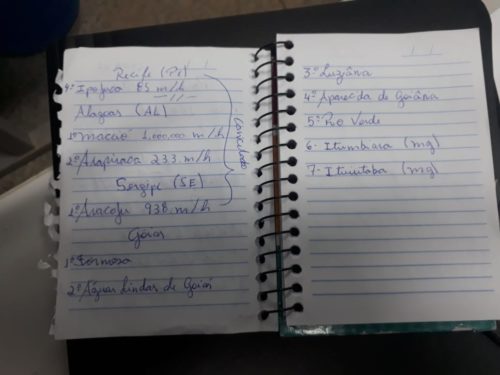 Recife (PE)
4º Ipojuca 85 m/h
Alagoas (AL)
1º maceió 1.000,000 m/h
2º Arapiraca 233 m/h
Sergipe (SE)
1º Aracaju 938 m/h
Goias
1º Formosa
2º Águas Lindas de Goiás
3º Luziânia
4º Aparecida de Goiânia
5º Rio Verde
6- Itumbiara (mg)
7- Ituiutaba (mg)